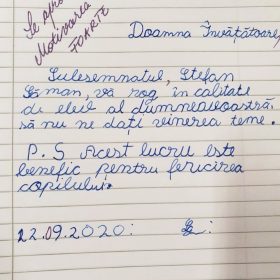 Se apro
Motivarea
FOARTE
Doamna Învățătoare,
Sulesemnatul, Ștefan
Șăman, vă rog, în calitate
de elev al dumneavoastră
să nu ne dați vinerea teme.
P. S Acest lucru este
benefic pentru fericirea
copilului.
22.09.2020: